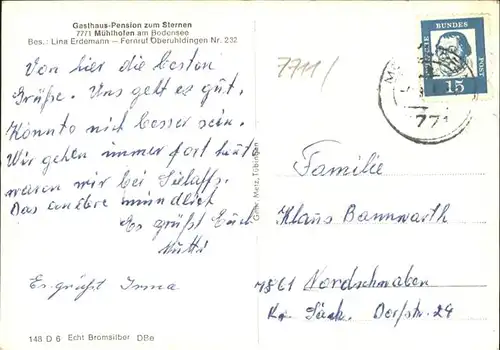 Gasthaus-Pension zum Sternen
7771 Mühlhofen am Bodensee
Bes.: Lina Erdemann – Fernruf Oberuhldingen Nr. 232
Von hier die besten
Grüße. Uns geht es gut,
Könnte nich besser sein.
Wir gehen immer fort heut
waren wir bei
Das andere mündlich
Es grüßt Euch
Mutti
Es grüßt Irma
148 D 6 Echt Bromsilber DBe
Gebr. Metz, Tübingen
7711/
DEUTSCHE BUNDESPOST
15
771
Familie
Klaus Bannwarth
7861 Nordschwaben
Kr. Säck. Dorfstr. 24